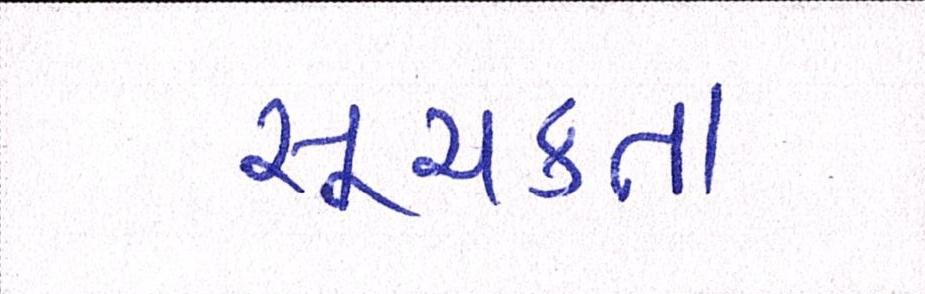 સૂચકતા